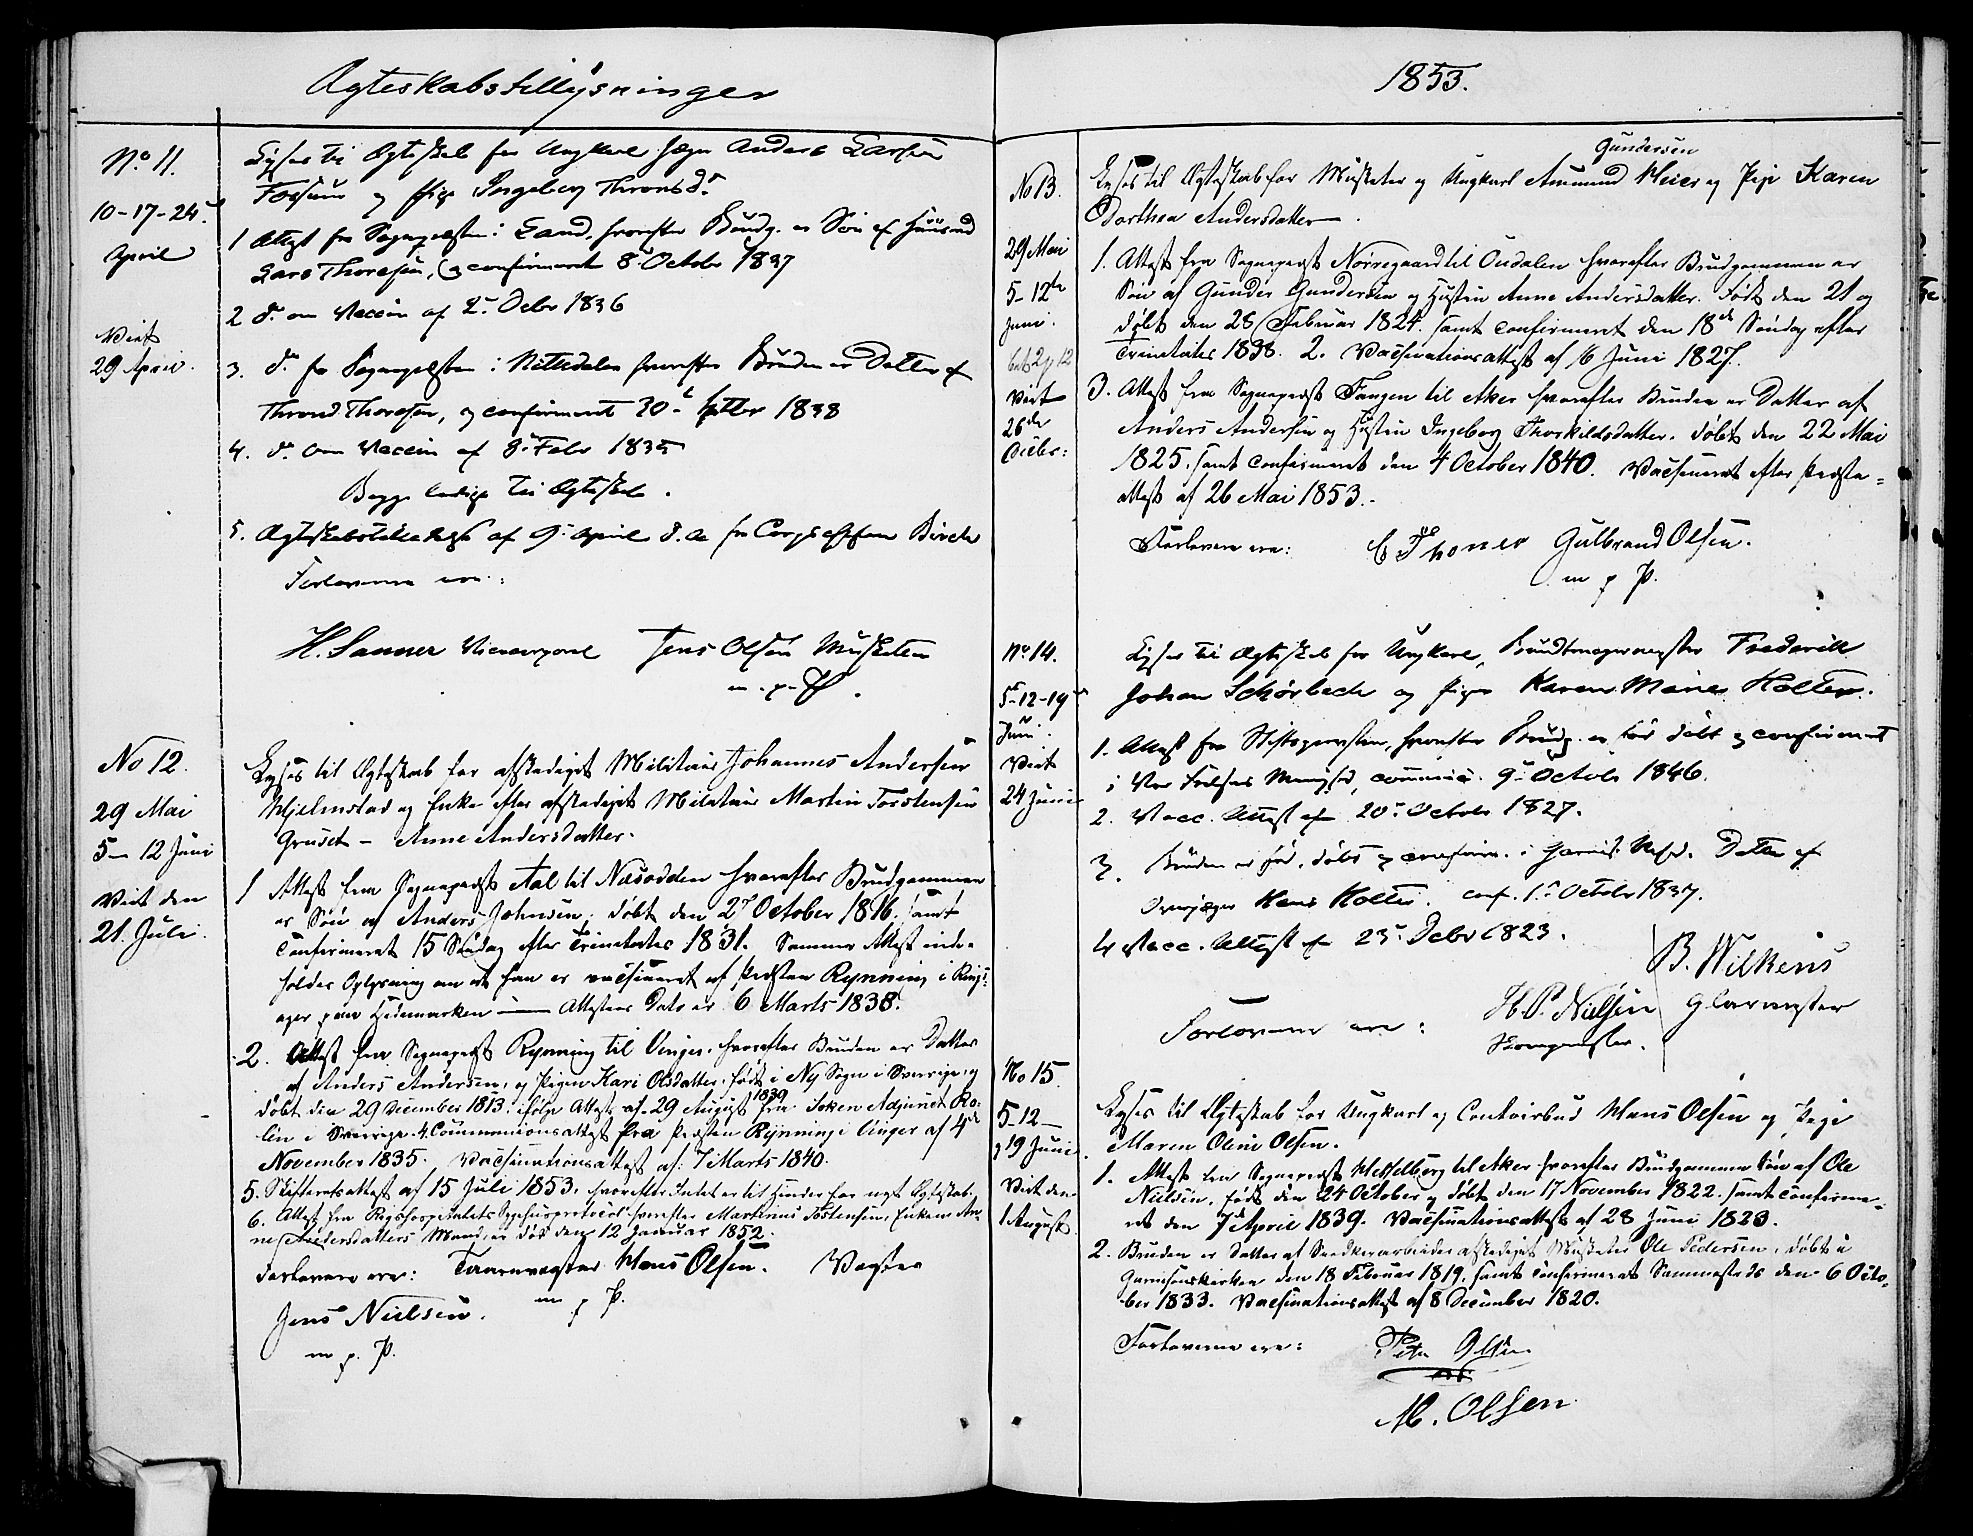 Ægteskabstillysninger
No 11.
10-17-24
April
Viet
29 April.
Lyses til Ægteskab for Ungkarl Jæger Anders Larsen
Fossum og Pige Ingeborg Thronsdr
1 Attest fra Sognepræsten i Land, hvorefter Brudg. er Søn af Huusmd
Lars Thoresen, og confirmeret 8 Octobr 1837
2 do om Vaccin af 2 Octbr 1836
3. do fra Sognepræsten i Nittedalen hvorefter Bruden er Datter af
Thrond Thoresen, og confirmeret 30 1838
4. do om Vaccin af 8 Febr 1835
Begge ledige til Ægteskab.
5. Ægteskabstilladelse af 9 April d. A. fra Corpschefen Birch
Forloverne ere:
H. Sanner Jens Olsen Musketeer
m. p. P.
No 12.
29 Mai
5-12 Juni
Viet den
21. Juli.
Lyses til Ægteskab for afskediget Militair Johannes Andersen
Hjelmstad og Enke efter afskediget Militair Martin Torstensen
Gruset - Anne Andersdatter.
1 Attest fra Sognepræst Aal til Næsodden hvorefter Brudgommen
er Søn af Anders Johnsen, døbt den 27 October 1816, samt
confirmeret 15 Søndag efter Trinitatis 1831. Samme Attest inde-
holder Oplysning om at han er vacsineret af Præsten Rynning i Rings-
ager paa Hedemarken — Attestens Dato er 6 Marts 1838.
2. Attest fra Sognepræst Rynning til Vinger, hvorefter Bruden er Datter
af Anders Andersen, og Pigen Kari Olsdatter, født i Ny Sogn i Sverrige, og
døbt den 29 December 1813, ifølge Attest af 29 August 1839 fra Soken Adjunct Ro-
lin i Sverrige. 4. Communionsattest fra Præsten Rynning i Vinger af 4de
November 1835. Vacsinationsattest af 7 Marts 1840.
5. Skifteretsattest af 15 Juli 1853, hvorefter Intet er til Hinder for nyt Ægteskab.
6. Attest fra Rigshospitalets Sygehusprotocol hvorefter Martinus Tostensen, Enken An-
ne Andersdatters Mand, er død den 12 Januar 1852.
Forloverne ere: Taarnvægter Hans Olsen. Vægter
m p P.
Jens Nielsen.
m. p. P.
1853.
No 13.
29 Mai
5-12te
Juni.
Viet
26de
Octbr:
Gundersen
Lyses til Ægteskab for Musketer og Ungkarl Amund Meier og Pige Karen
Dorthea Andersdatter.
1. Attest fra Sognepræst Nørregaard til Oudalen hvorefter Brudgommen er
Søn af Gunder Gundersen og Hustru Anne Andersdatter. født den 21 og
døbt den 28 Februar 1824. samt confirmeret den 18de Søndag efter
Trinitatis 1838. 2. Vacsinationsattest af 16 Juni 1827.
3. Attest fra Sognepræst Fangen til Aker hvorefter Bruden er Datter af
Anders Andersen og Hustru Ingeborg Thorkildsdatter. døbt den 22 Mai
1825. samt confirmeret den 4 October 1840. Vacsineret efter Præste-
attest af 26 Mai 1853.
Forloverne ere: C Thoner Gulbrand Olsen.
m p P.
No 14.
5-12-19
Juni.
Viet
24 Juni
Lyses til Ægteskab for Ungkarl, Frederik
Johan Schørbech og Pige Karen Marie Holter.
1. Attest fra Stiftsprovsten, hvorefter Brudg. er her døbt og confirmeret
i Vor Frelsers Menighed, 9 Octobr 1846.
2. Vacc. Attest af 20 Octobr 1827.
3. Bruden er fød, døbt og confirm. i Garnis. Mghd. Datter af
Hans Holter. conf. 1 Octobr 1837.
4 Vacc. Attest af 23 Decbr 1823.
Forloverne ere: H. P. Nielsen
B. Wilkens
Glarmester
No 15.
5-12-
19 Juni
Viet den
1 August
Lyses til Ægteskab for Ungkarl og Contoirbud Hans Olsen og Pige
Maren Oline Olsen.
1. Attest fra Sognepræst Hesselberg til Aker hvorefter Brudgommen Søn af Ole
Nielsen, født den 24 October og døbt den 17 November 1822. samt confirme-
ret den 7de April 1839. Vacsinationsattest af 28 Juni 1823.
2. Bruden er Datter af afskediget Musketer Ole Pedersen, døbt i
Garnisonskirken den 18 Februar 1819. samt confirmeret Sammesteds den 6 Octo-
ber 1833. Vacsinationsattest af 8 December 1820.
Forloverne ere: Peter Olsen
M. Olsen.